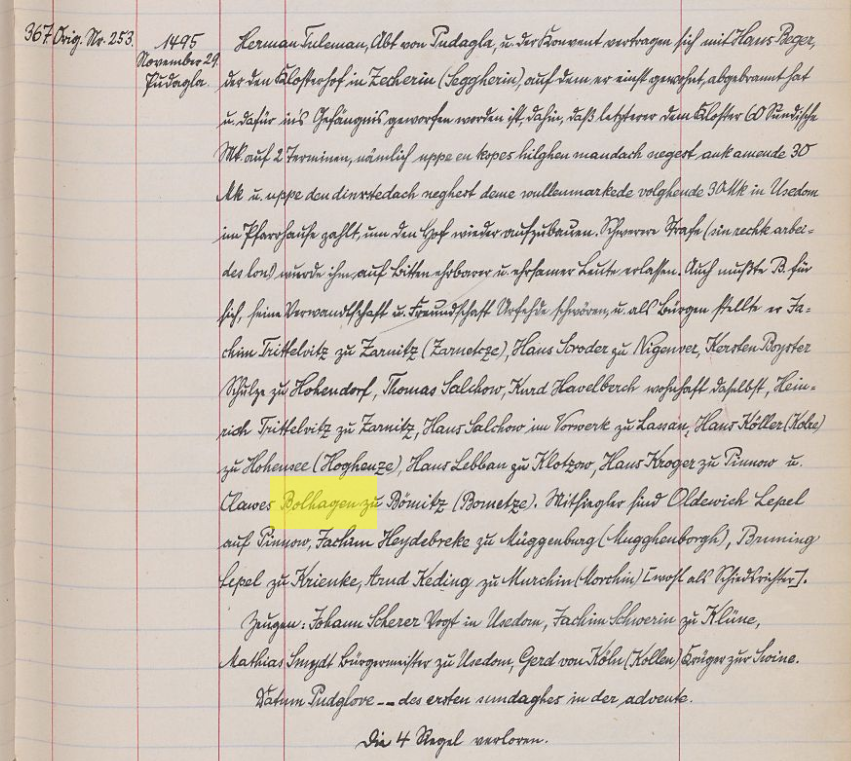 367. Orig. Nr. 253.
1495
November 29.
Pudagla.
Herman Tuleman, Abt von Pudagla, u. der Konvent vertragen sich mit Hans Beger,
der den Klosterhof in Zecherin (Seggherin), auf dem er einst gewohnt, abgebrannt hat
u. dafür ins Gefängnis geworfen worden ist, dahin, daß letzterer dem Kloster 60 Sundische
Mk. auf 2 Terminen, nämlich uppe en kopes hilghen mandach negest ank amende 30
Mk u. uppe den dinxtedach neghest deme wullenmarkede volghende 30 Mk in Usedom
im Pfarrhause zahlt, um den Hof wieder aufzubauen. Schwerere Strafe (sin rechte arbei=
des lon) wurde ihm auf Bitten ehrbarer u. ehrsamer Leute erlassen. Auch mußte B. für
sich, seine Verwandtschaft u. Freundschaft Urfehde schwören, u. als Bürgen stellte er Ja=
chim Trittelvitz zu Zarnitz (Zarnetze), Hans Scroder zu Nigenver, Kersten Boyster
Schulze zu Hohendorf, Thomas Salchow, Kurd Havelberch wohnhaft daselbst, Hein=
rich Trittelvitz zu Zarnitz, Hans Salchow im Vorwerk zu Lassan, Hans Köller (Kolre)
zu Hohensee (Hoghenze), Hans Lebban zu Klotzow, Hans Kroger zu Pinnow u.
Clawes Bolhagen zu Bömitz (Bometze). Mitsiegler sind Oldewich Lepel
auf Pinnow, Jacham Heydebreke zu Müggenburg (Mugghenborgh), Bruning
Lepel zu Krienke, Arnd Keding zu Murchin (Morchin) [wohl als Schiedsrichter].
Zeugen: Johann Scherer Vogt in Usedom, Jachim Schwerin zu Klüne,
Mathias Smydt Bürgermeister zu Usedom, Gerd von Köln (Kollen) Krüger zur Swine.
Datum Pudglove -- des ersten sundaghes in der advente.
Die 4 Siegel verloren.